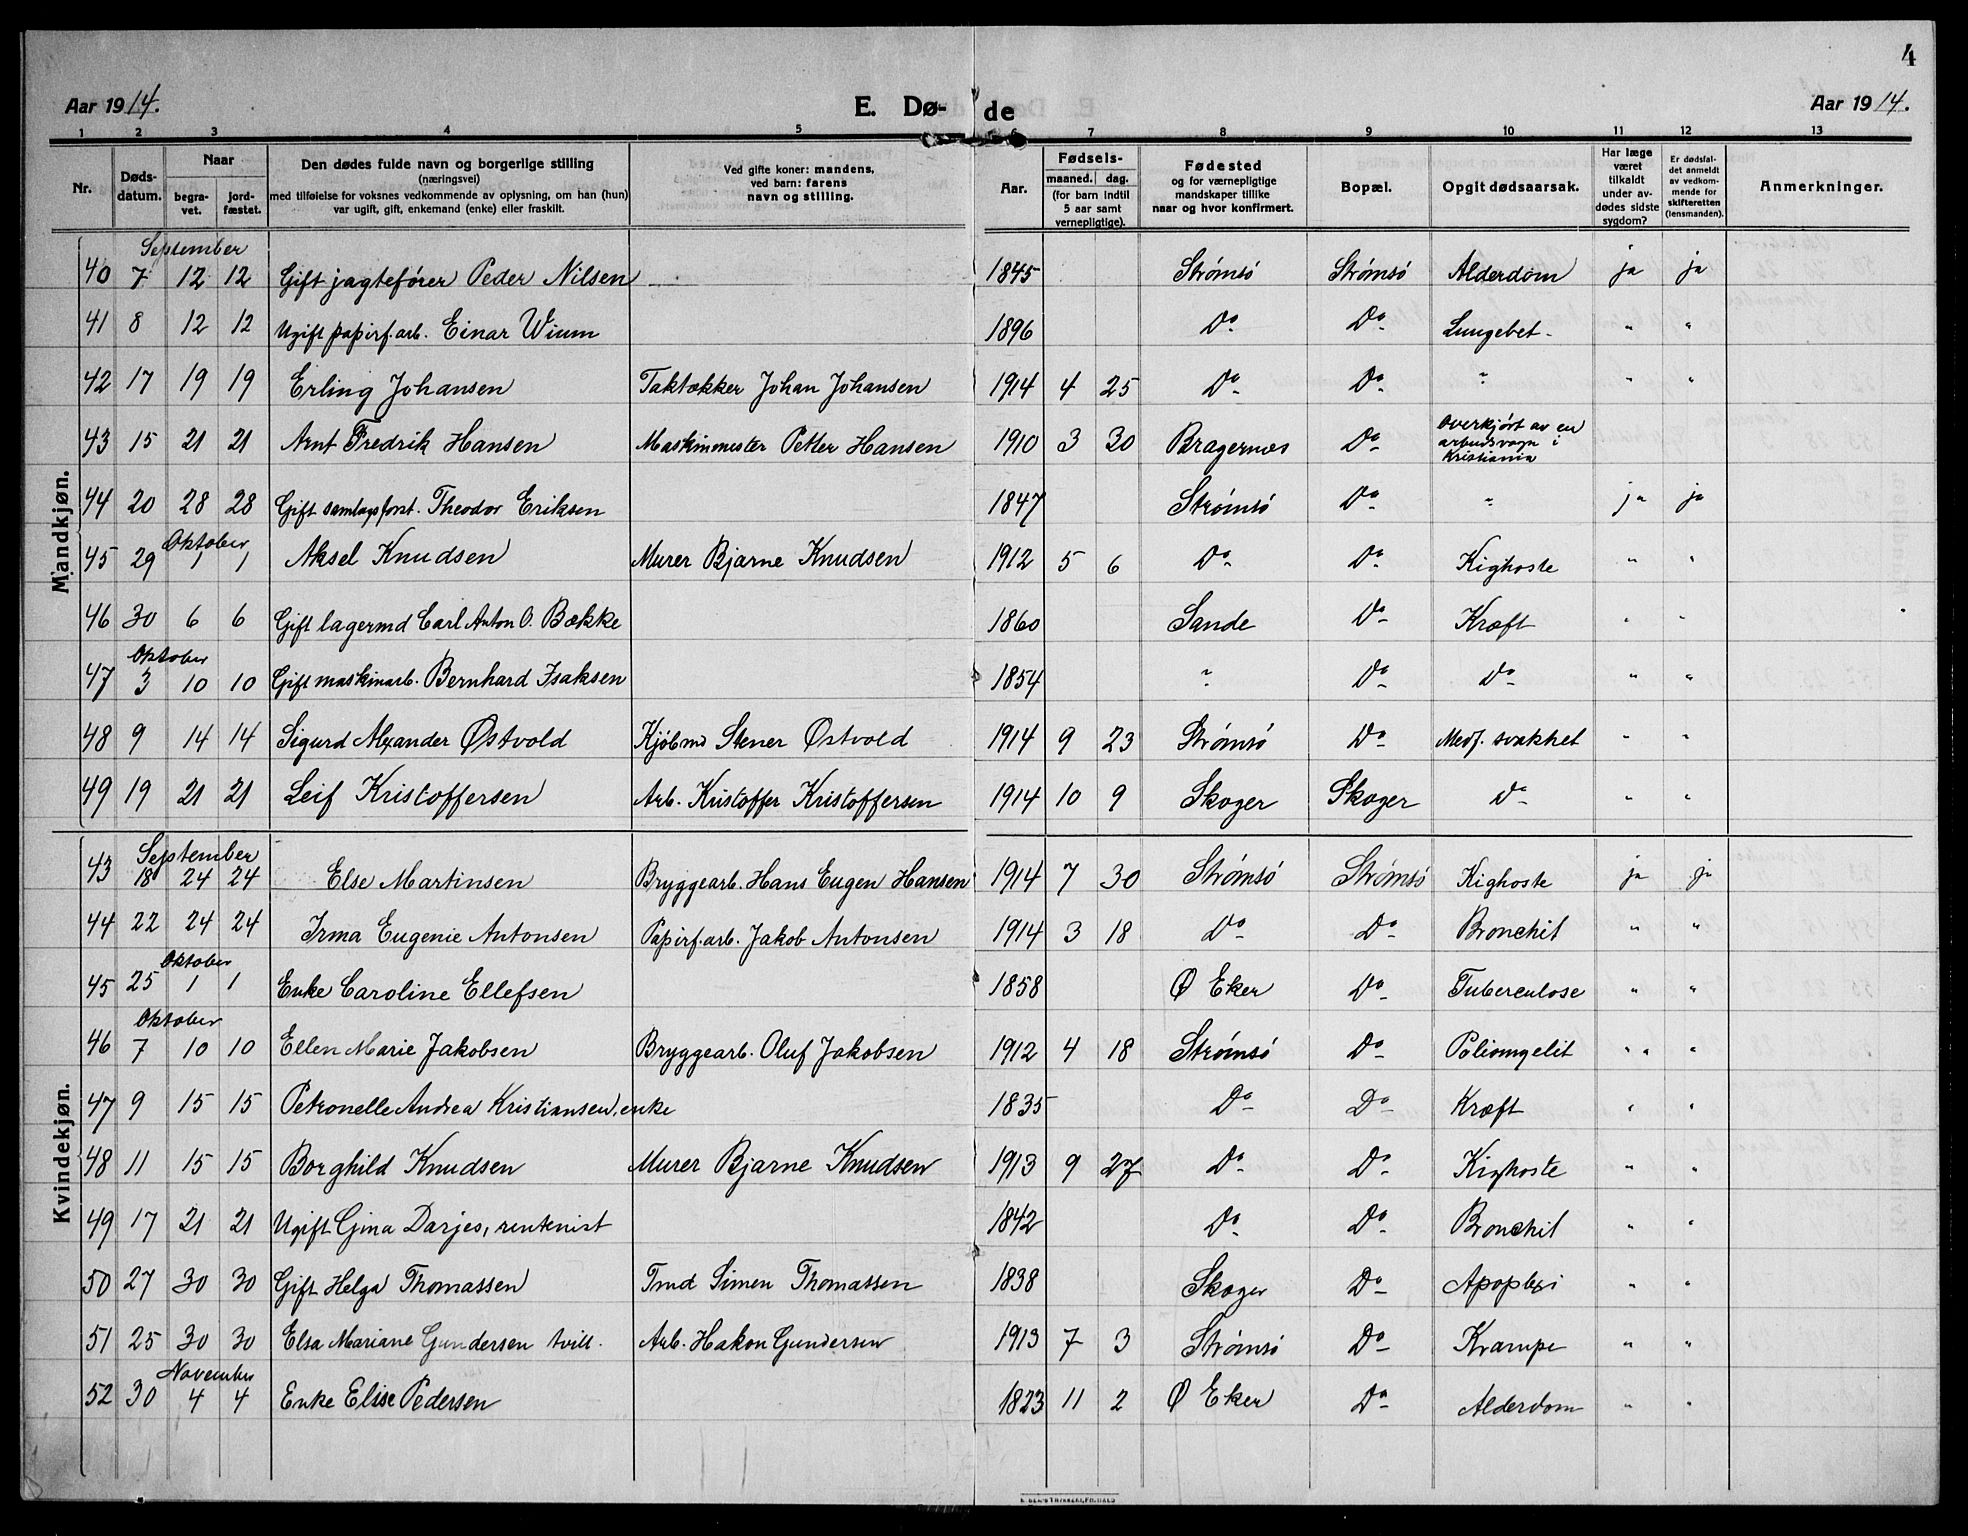 4
Aar 1914. E. Dø- de Aar 1914.
1 2 3 4 5 6 7 8 9 10 11 12 13
Nr. Døds-datum. Naar begra-vet. jord-fæstet. Den dødes fulde navn og borgerlige stilling (næringsvei) med tilføielse for voksnes vedkommende av oplysning, om han (hun) var ugift, gift, enkemand (enke) eller fraskilt. Ved gifte koner: mandens, ved barn: farens navn og stilling. Aar. Fødsels- maaned. dag. (for barn indtil 5 aar samt vernepligtige). Fødested og for værnepligtige mandskaper tillike naar og hvor konfirmert. Bopæl. Opgit dødsaarsak. Har læge været tilkaldt under av-dødes sidste sygdom? Er dødsfal-det anmeldt av vedkom-mende for skifteretten (lensmanden). Anmerkninger.
Mandkjøn.
September
40 7 12 12 Gift jagtefører Peder Nilsen — 1845 Strømsø Strømsø Alderdom ja ja
41 8 12 12 Ugift papirf.arb. Einar Wium 1896 Do Do Lungebet. " "
42 17 19 19 Erling Johansen Taktækker Johan Johansen 1914 4 25 Do Do " " "
43 15 21 21 Arnt Fredrik Hansen Maskinmester Petter Hansen 1910 3 30 Bragernes Do Overkjørt av en arbeidsvogn i Kristiania
44 20 28 28 Gift samlagsforst. Theodor Eriksen 1847 Strømsø Do " ja ja
Oktober
45 29 1 1 Aksel Knudsen Murer Bjarne Knudsen 1912 5 6 Do Do Kighoste " "
46 30 6 6 Gift lagermd Carl Anton O. Bække 1860 Sande Do Kræft " "
Oktober
47 3 10 10 Gift maskinarb. Bernhard Isaksen 1854 " Do Do " "
48 9 14 14 Sigurd Alexander Østvold Kjøbmd Stener Østvold 1914 9 23 Strømsø Do Medf. svakhet " "
49 19 21 21 Leif Kristoffersen Arb. Kristoffer Kristoffersen 1914 10 9 Skoger Skoger Do " "
Kvindekjøn.
September
43 18 24 24 Else Martinsen Bryggearb. Hans Eugen Hansen 1914 7 30 Strømsø Strømsø Kighoste ja ja
44 22 24 24 Irma Eugenie Antonsen Papirf.arb. Jakob Antonsen 1914 3 18 Do Do Bronchit " "
Oktober
45 25 1 1 Enke Caroline Ellefsen 1858 Ø Eker Do Tuberculose " "
Oktober
46 7 10 10 Ellen Marie Jakobsen Bryggearb. Oluf Jakobsen 1912 4 18 Strømsø Do Poliomyelit " "
47 9 15 15 Petronelle Andrea Kristiansen, enke 1835 Do Do Kræft " "
48 11 15 15 Borghild Knudsen Murer Bjarne Knudsen 1913 9 27 Do Do Kighoste " "
49 17 21 21 Ugift Gina Darjes, rentenist 1842 Do Do Bronchit " "
50 27 30 30 Gift Helga Thomassen Tmd Simen Thomassen 1838 Skoger Do Apoplexi " "
51 25 30 30 Elsa Mariane Gundersen tvill. Arb. Hakon Gundersen 1913 7 3 Strømsø Do Krampe " "
November
52 30 4 4 Enke Elise Pedersen 1823 11 2 Ø Eker Do Alderdom " "